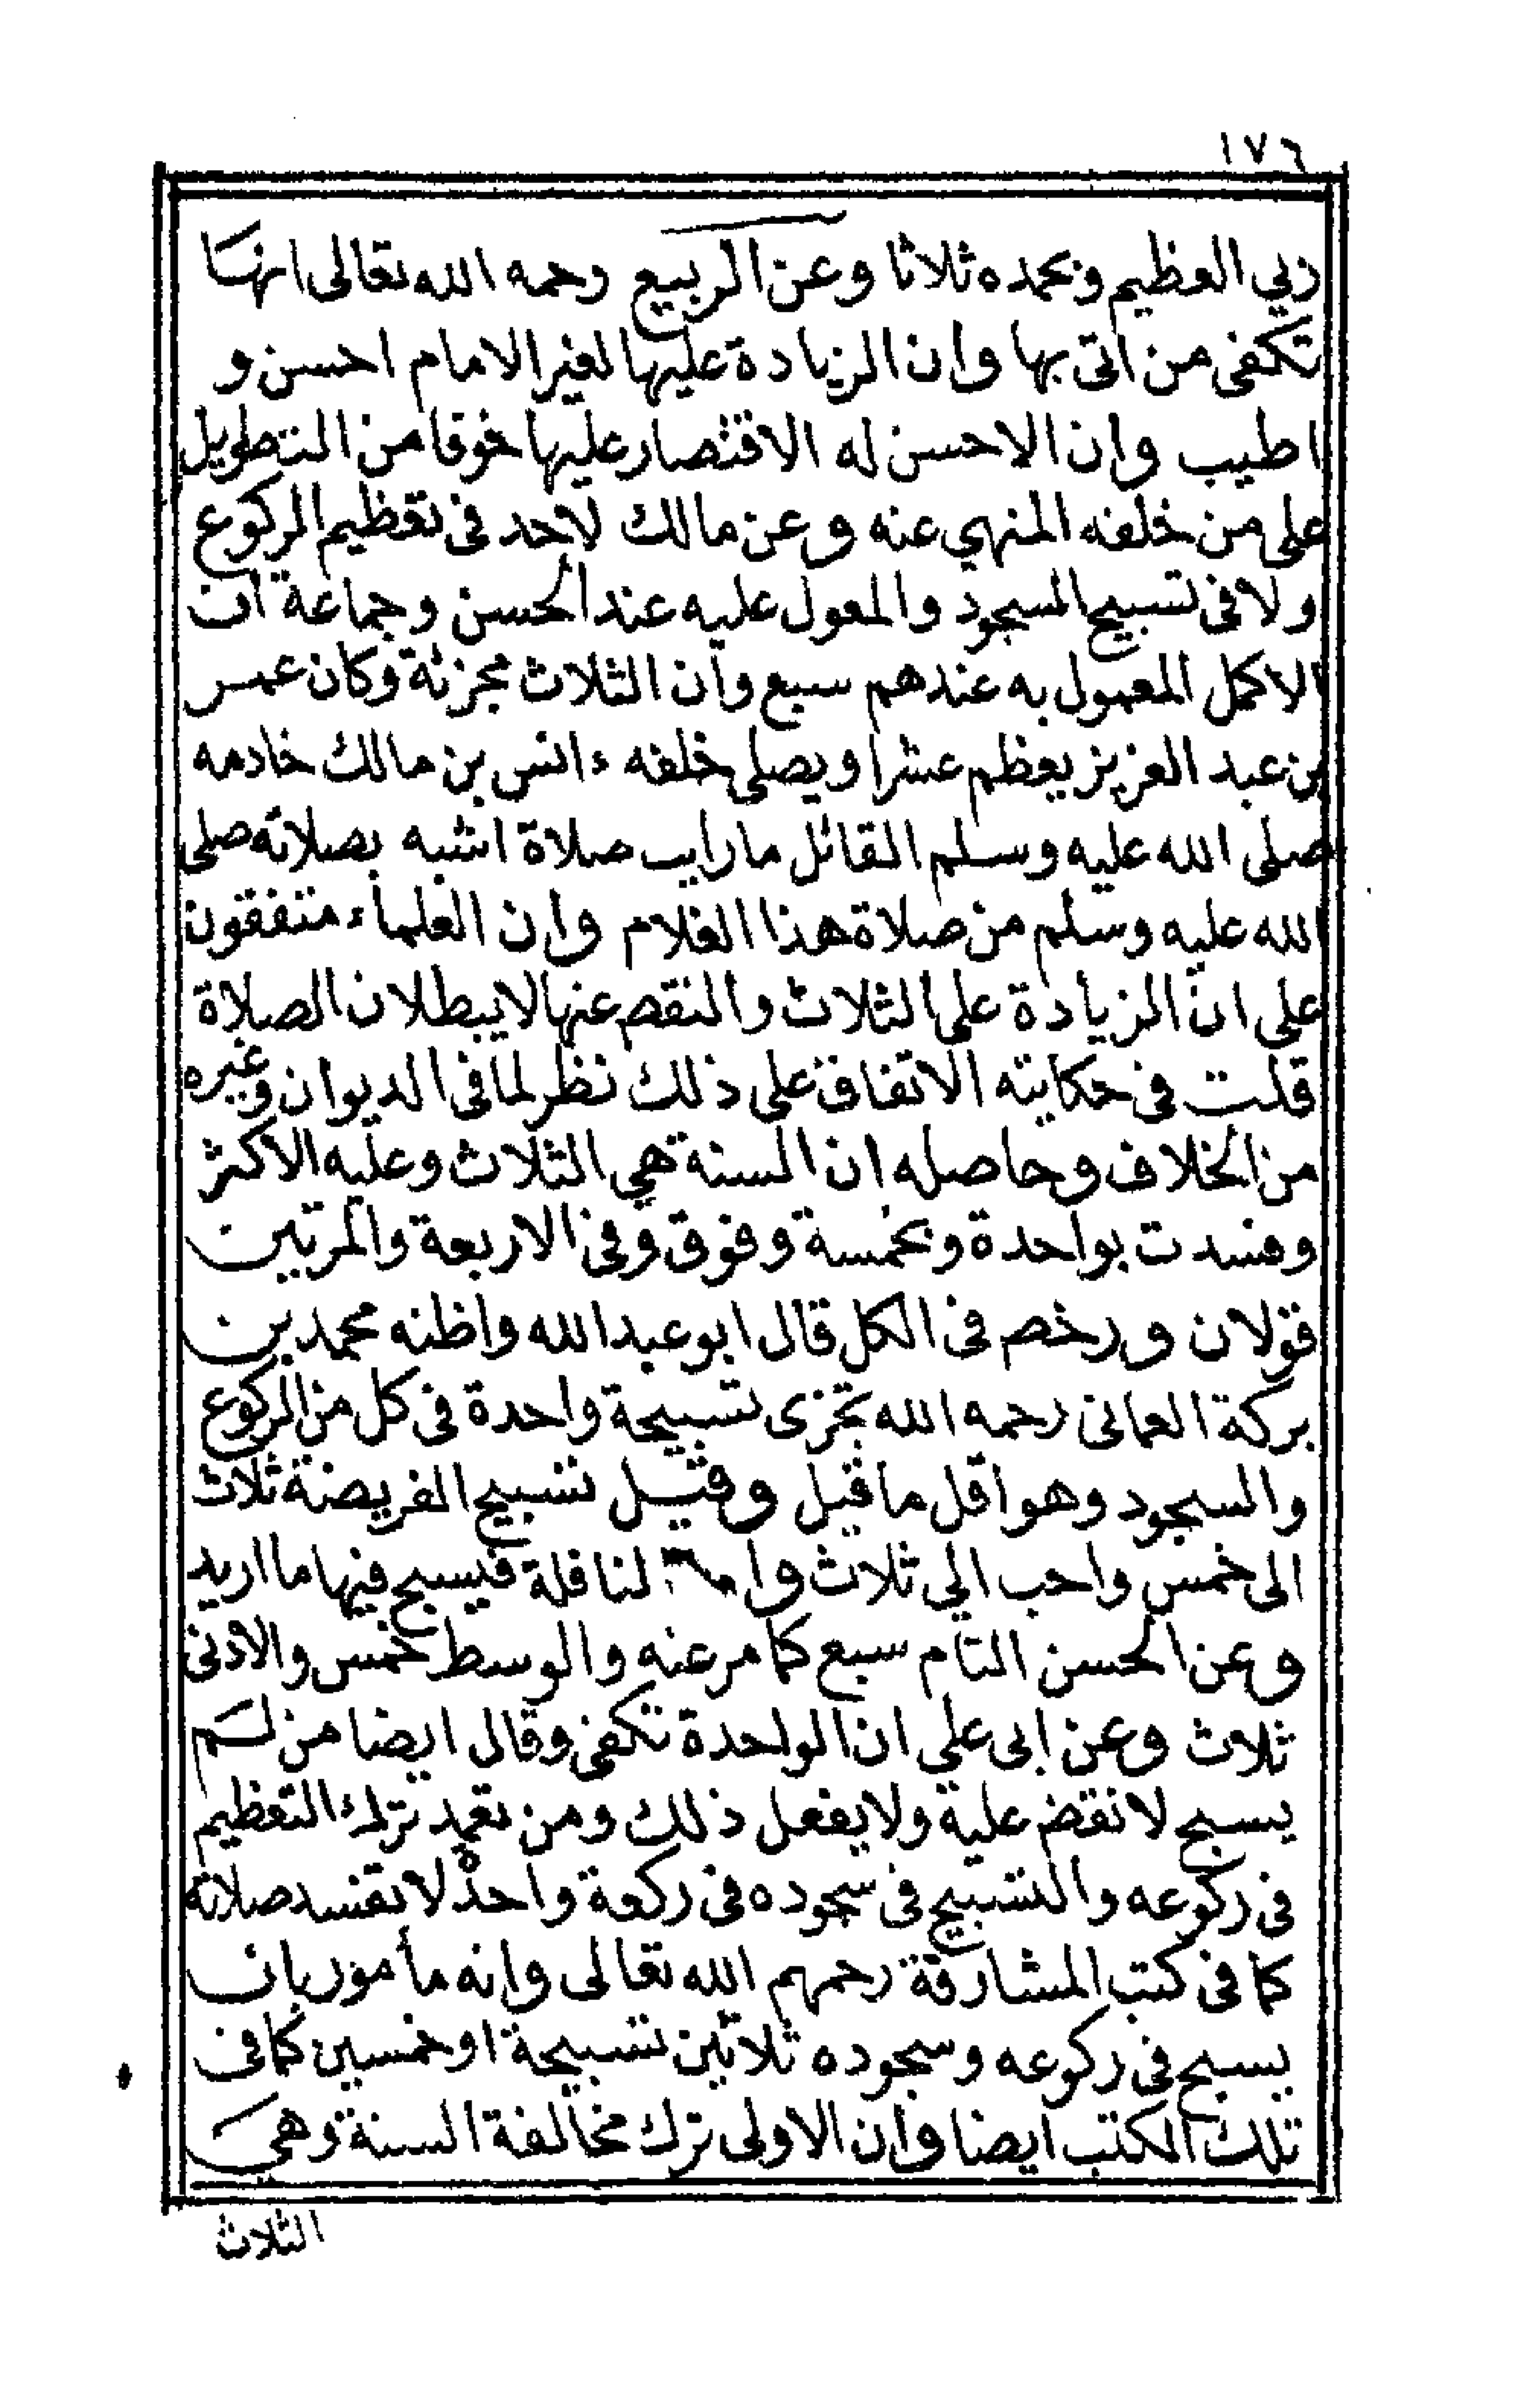 ١٧٦
ربي العظيم وبحمده ثلاثا وعن الربيع رحمه الله تعالى انها
تكفى من اتى بها وان الزيادة عليها لغير الامام احسن و
اطيب وان الاحسن له الاقتصار عليها خوفا من التطويل
على من خلفه المنهي عنه وعن مالك لاحد فى تعظيم الركوع
ولا فى تسبيح السجود والمعول عليه عند الحسن وجماعة ان
الاكمل المعمول به عندهم سبع وان الثلاث مجزئة وكان عمر
بن عبد العزيز يعظم عشرا ويصلى خلفه انس بن مالك خادمه
صلى الله عليه وسلم القائل ما رايت صلاة اشبه بصلاته صلى
الله عليه وسلم من صلاة هذا الغلام وان العلماء متفقون
على ان الزيادة على الثلاث والنقص عنها لا يبطلان الصلاة
قلت فى حكايته الاتفاق على ذلك نظر لما فى الديوان وغيره
من الخلاف وحاصله ان السنة هي الثلاث وعليه الاكثر
وفسدت بواحدة وبخمسة وفوق وفى الاربعة والمرتين
قولان ورخص فى الكل قال ابو عبد الله واظنه محمد بن
بركة العمانى رحمه الله تجزى تسبيحة واحدة فى كل من الركوع
والسجود وهو اقل ما قيل وقيل تسبيح الفريضة ثلاث
الى خمس واحب الي ثلاث وا لنافلة فيسبح فيها ما اريد
وعن الحسن التام سبع كما مر عنه والوسط خمس والادنى
ثلاث وعن ابى علي ان الواحدة تكفى وقال ايضا من لم
يسبح لا نقض عليه ولا يفعل ذلك ومن تعمد ترك التعظيم
فى ركوعه والتسبيح فى سجوده فى ركعة واحدة لا تفسد صلاته
كما فى كتب المشارقة رحمهم الله تعالى وانه مأمور بان
يسبح فى ركوعه وسجوده ثلاثين تسبيحة او خمسين كما فى
تلك الكتب ايضا وان الاولى ترك مخالفة السنة وهي
الثلاث